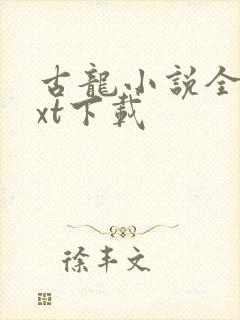 古龍小説全
xt下載
徐丰文